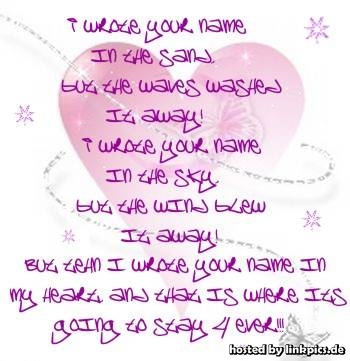 I wrote your name
In the sand,
but the waves washed
It away!
I wrote your name
In the sky
but the wind blew
It away!
But tehn I wrote your name In
my heart, and that is where Its
going to stay 4 ever!!!
hosted by linkpics.de